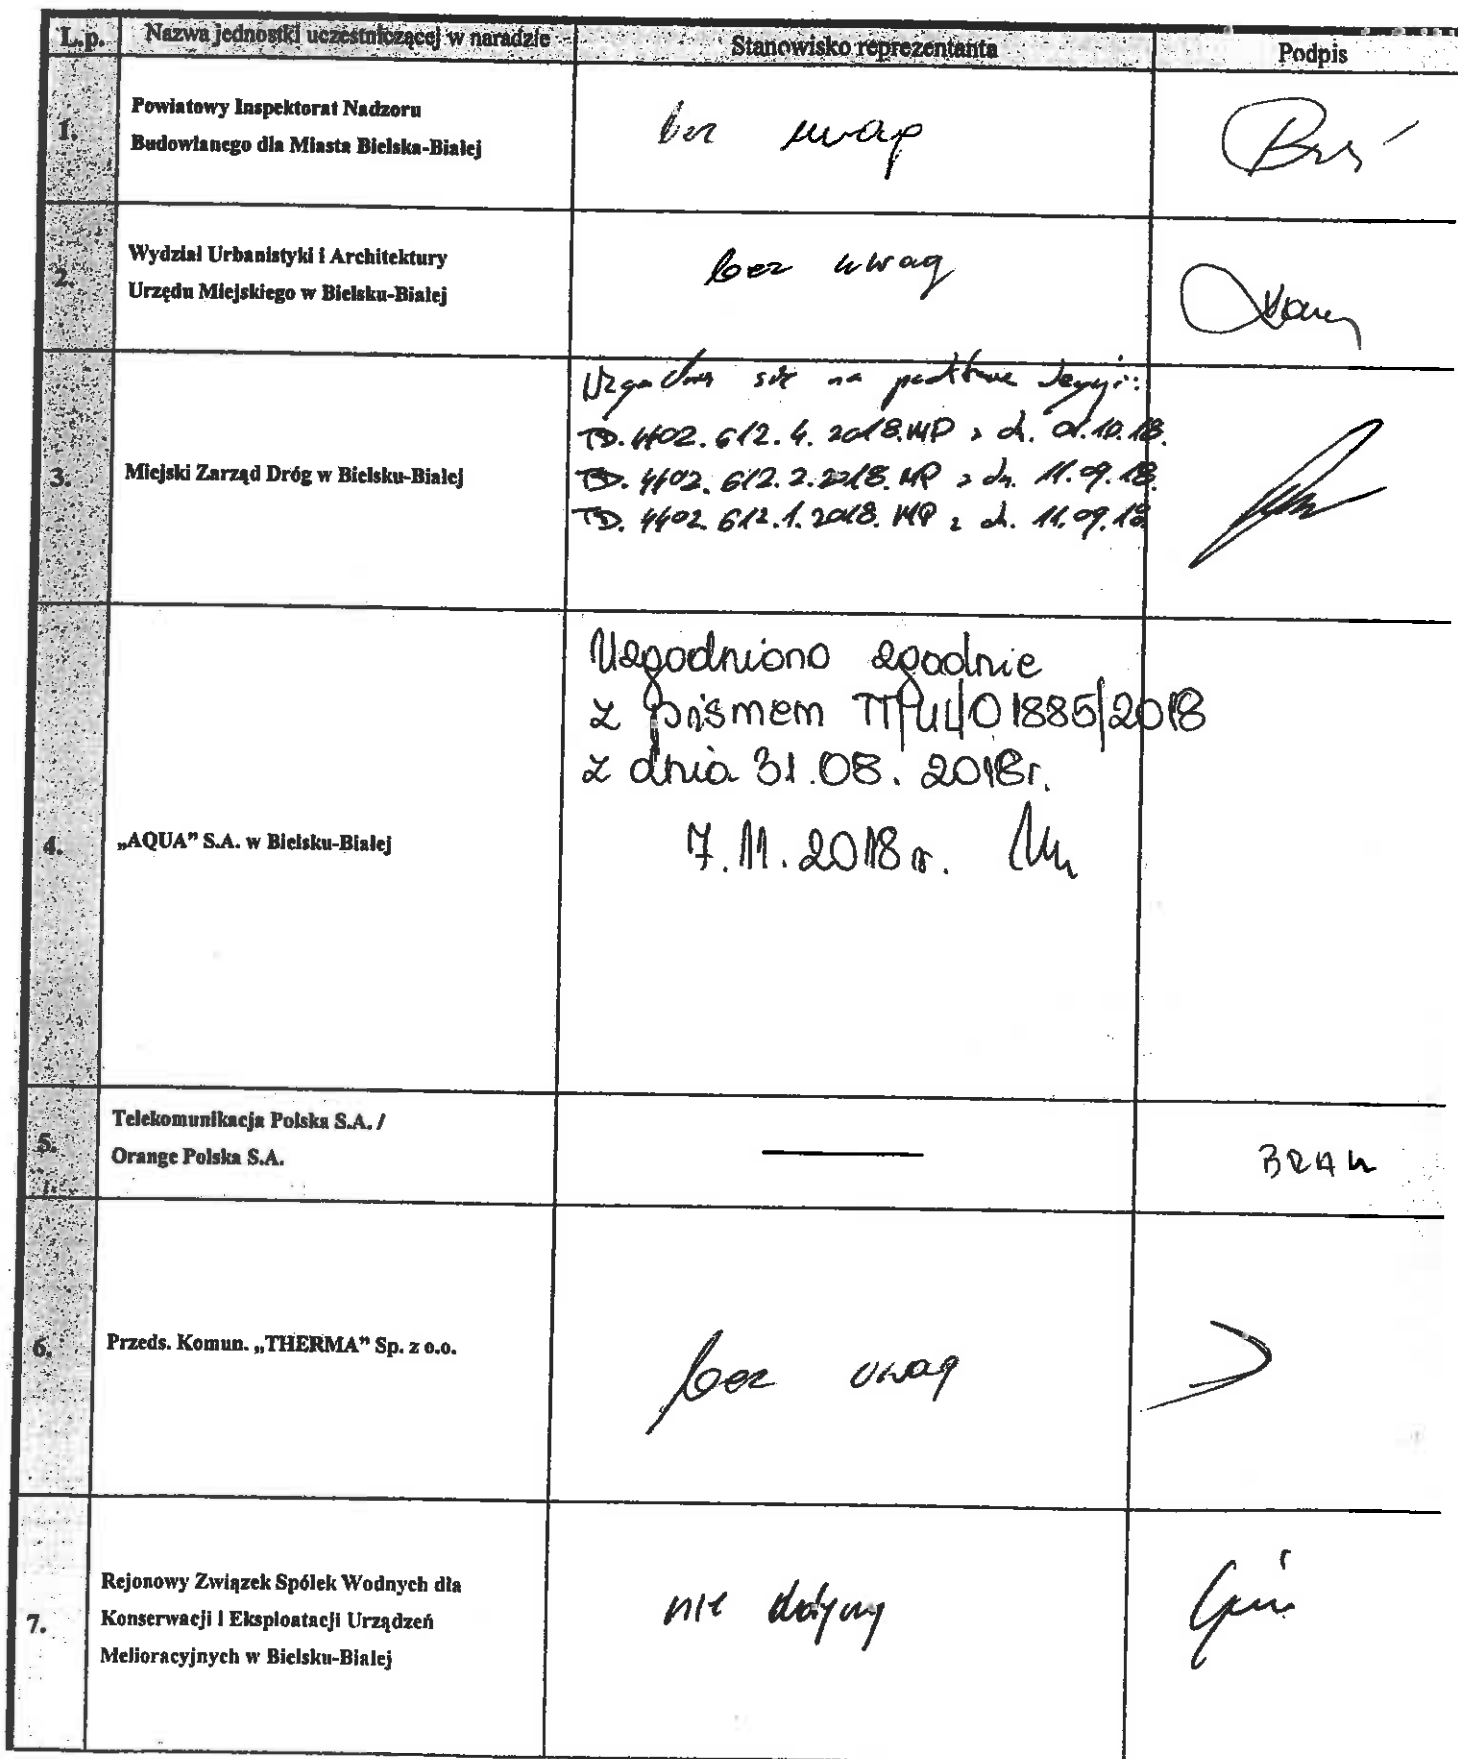 L.p. Nazwa jednostki uczestniczącej w naradzie Stanowisko reprezentanta Podpis
1. Powiatowy Inspektorat Nadzoru
Budowlanego dla Miasta Bielska-Białej
bez uwag
2. Wydział Urbanistyki i Architektury
Urzędu Miejskiego w Bielsku-Białej
bez uwag
3. Miejski Zarząd Dróg w Bielsku-Białej
się na
TD.4402.612.4.2018.MP z d. 01.10.18.
TD.4402.612.2.2018.MP z dn. 11.09.18.
TD.4402.612.1.2018.MP z d. 11.09.18.
4. „AQUA” S.A. w Bielsku-Białej
Uzgodniono zgodnie
z pismem 01885/2018
z dnia 31.08.2018r.
7.11.2018r.
5. Telekomunikacja Polska S.A. /
Orange Polska S.A.
BRAK
6. Przeds. Komun. „THERMA” Sp. z o.o.
bez uwag
7. Rejonowy Związek Spółek Wodnych dla
Konserwacji i Eksploatacji Urządzeń
Melioracyjnych w Bielsku-Białej
nie dotyczy